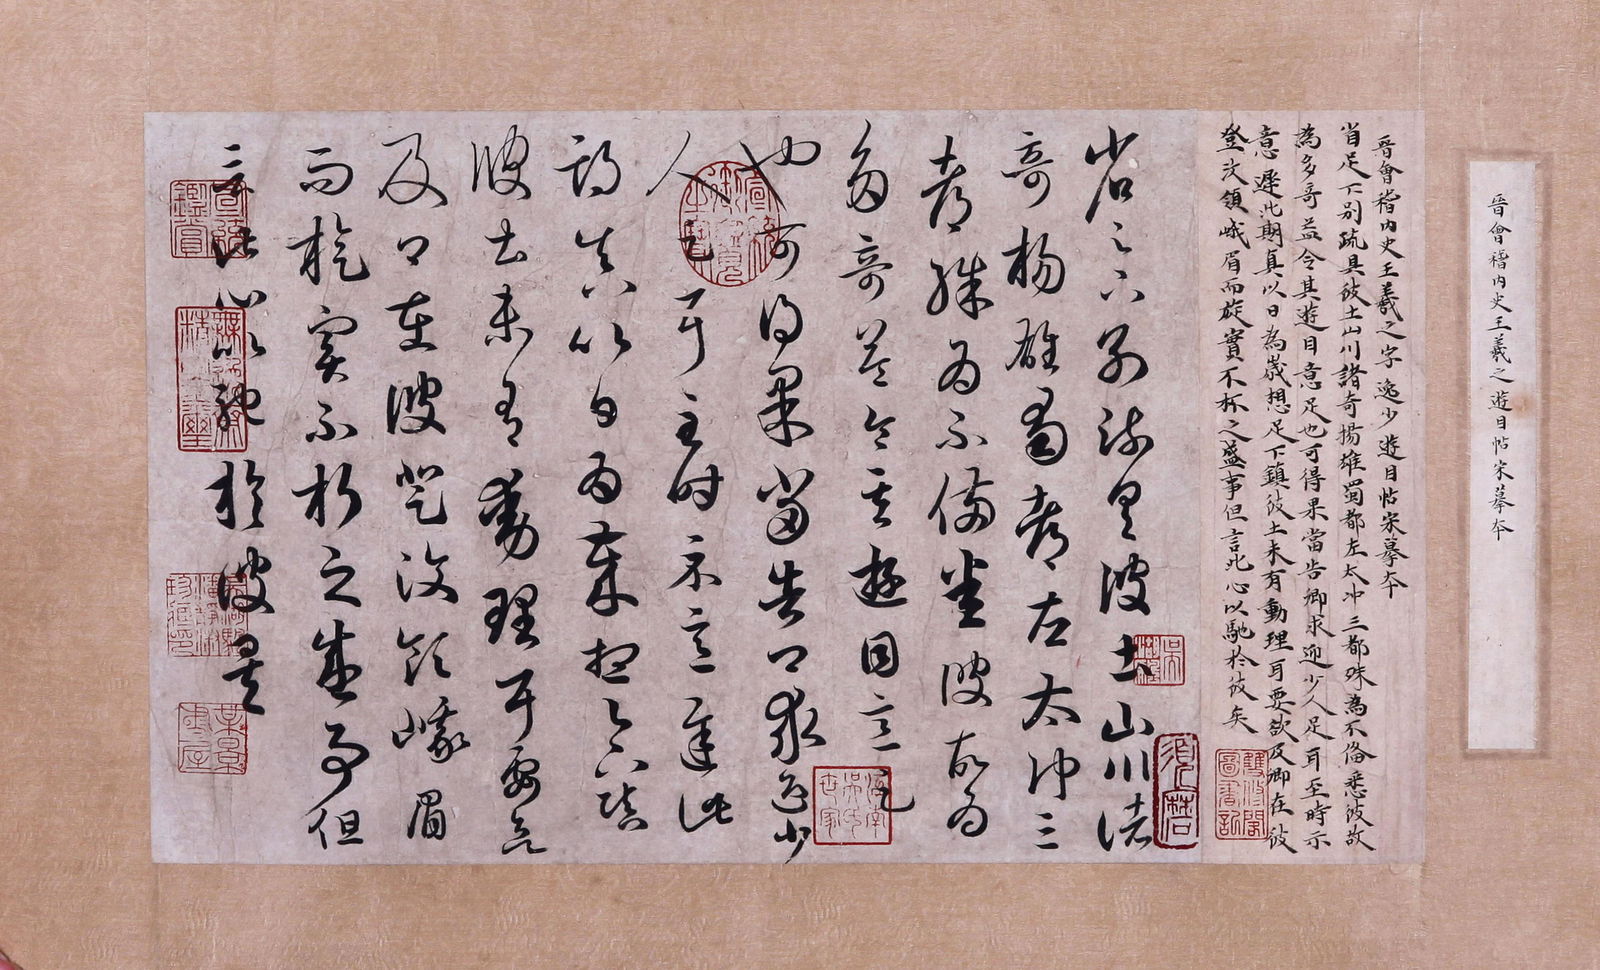 晉會稽內史王羲之遊目帖宋摹本
晉會稽內史王羲之字逸少遊目帖宋摹本
省足下別疏具彼土山川諸奇揚雄蜀都左太冲三都殊為不俻悉彼故
為多奇益令其遊目意足也可得果當告卿求迎少人足耳至時示
意遲此期真以日為歲想足下鎮彼土未有動理耳要欲及卿在彼
登汶領峨眉而旋實不朽之盛事但言此心以馳於彼矣
省足下別疏具彼土山川諸
奇楊雄蜀都左太冲三
都殊為不備悉彼故為
多奇益令其遊目意足
也可得果當告卿求迎少
人足耳至時示意遲此
期真以日為歲想足下鎮
彼土未有動理耳要欲
及卿在彼登汶領峨眉
而旋實不朽之盛事但
言此心以馳於彼矣